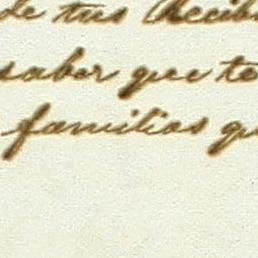 de tus Recib
saber que te
familias qu